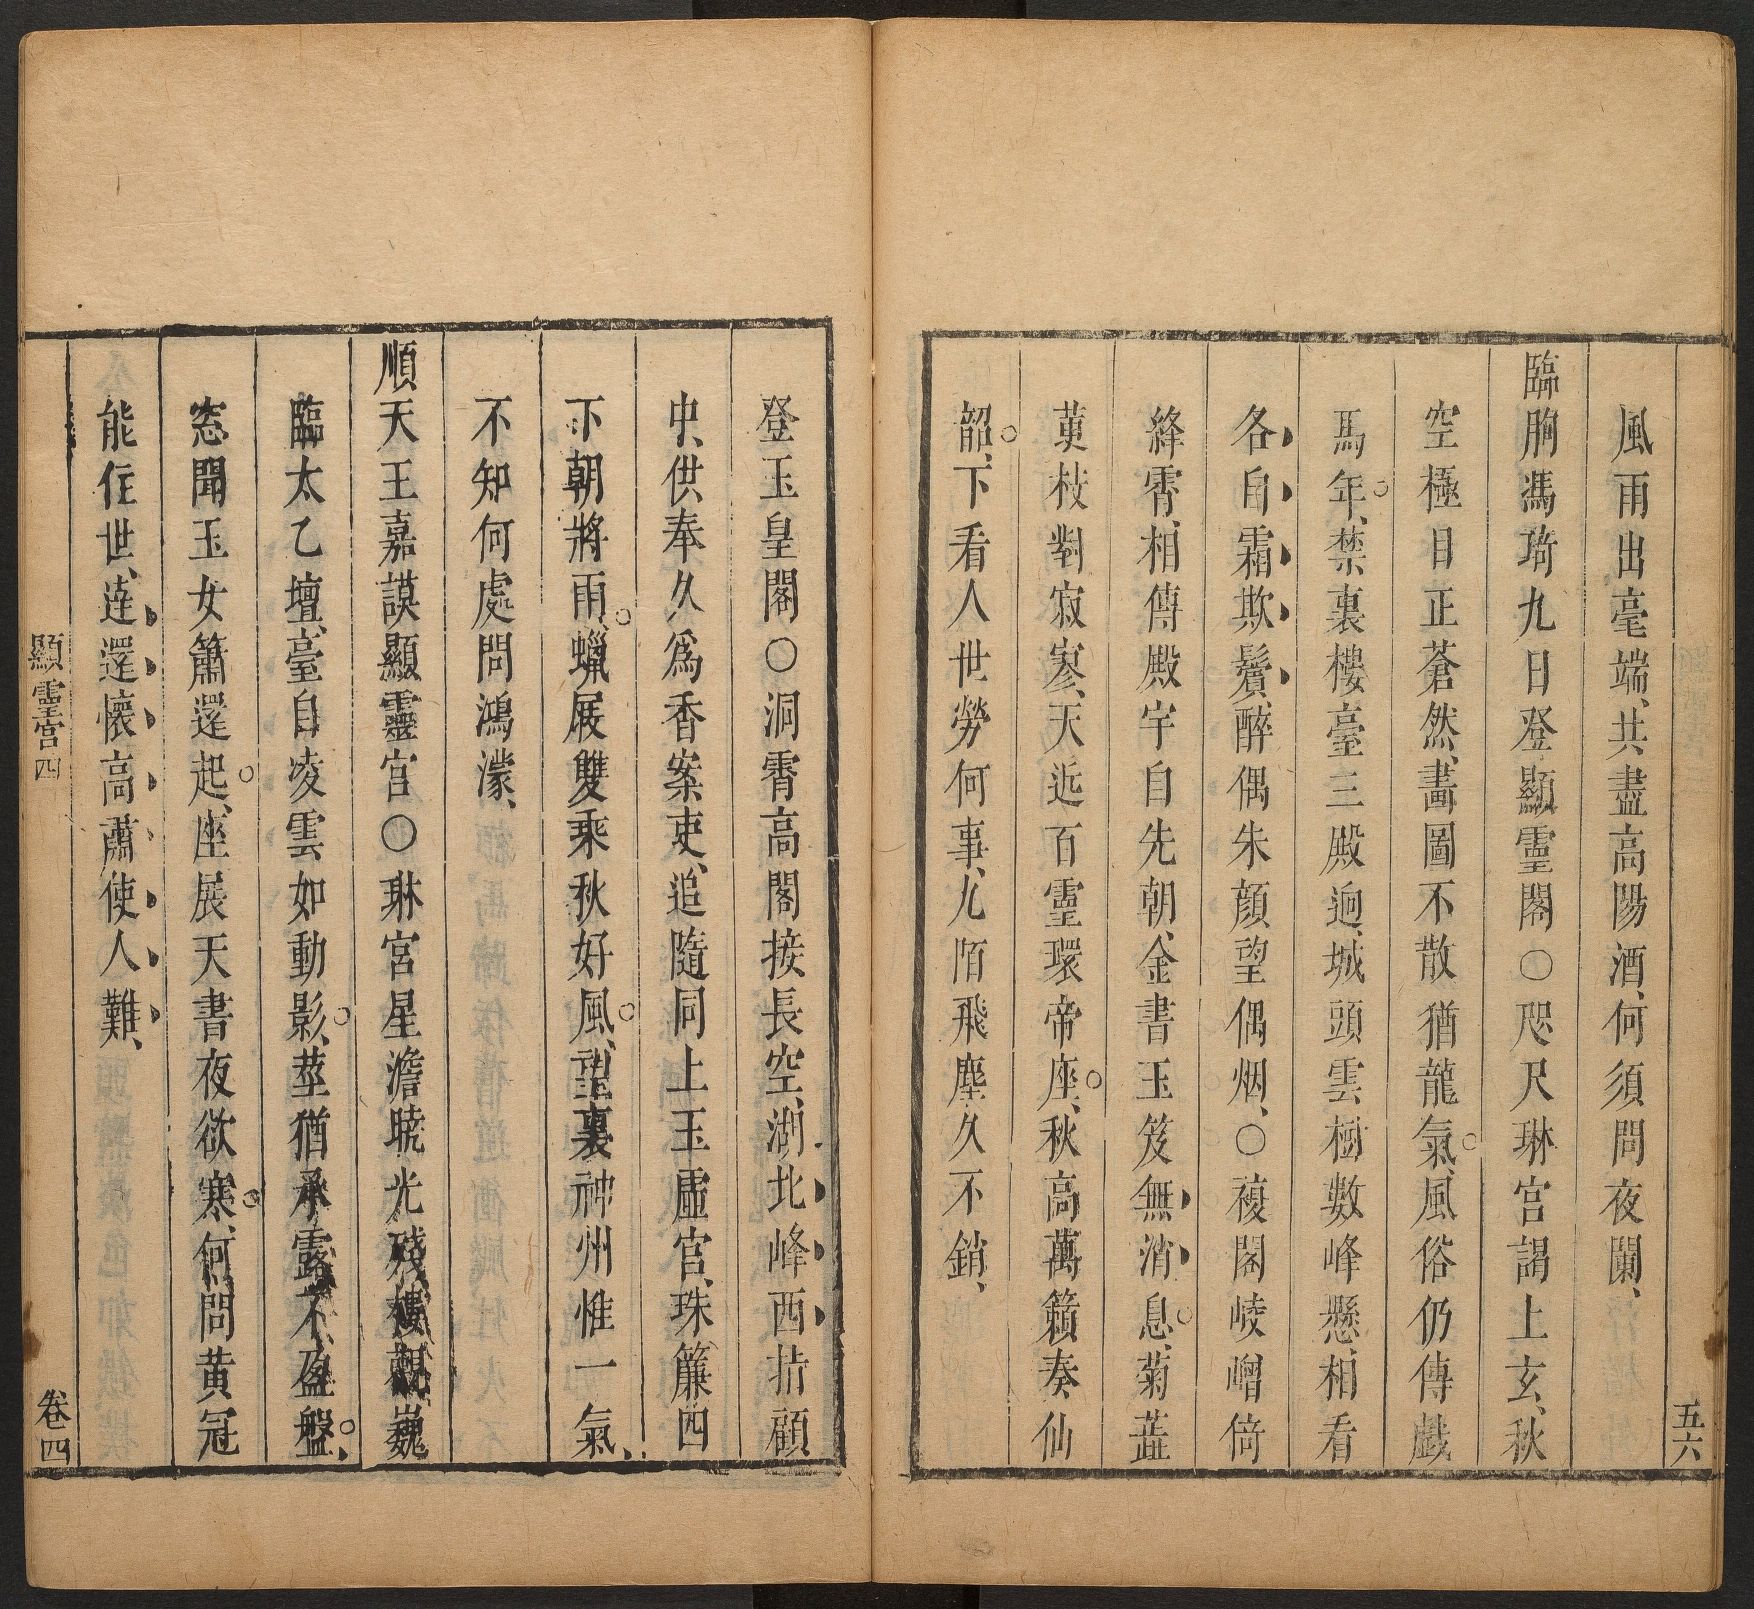 五六
風雨出毫端、共盡高陽酒、何須問夜闌、
臨朐馮琦九日登顯靈閣○咫尺琳宮謁上玄、秋
空極目正蒼然、畵圖不散猶龍氣、風俗仍傳戲
馬年、禁裏樓臺三殿迥、城頭雲樹數峰懸、相看
各自霜欺鬢、醉偶朱顔望偶烟、○複閣崚嶒倚
絳霄、相傳殿宇自先朝、金書玉笈無消息、菊蘂
萸枝對寂寥、天近百靈環帝座、秋高萬籟奏仙
韶、下看人世勞何事、九陌飛塵久不銷、
登玉皇閣○洞霄高閣接長空、湖北峰西指顧
中、供奉久爲香案吏、追隨同上玉虛宮、珠簾四
下朝將雨、蠟屐雙乘秋好風、望裏神州惟一氣、
不知何處問鴻濛、
順天王嘉謨顯靈宮○琳宮星澹曉光殘、樓觀巍
臨太乙壇、臺自凌雲如動影、莖猶承露不盈盤、
窓聞玉女簫遲起、座展天書夜欲寒、何問黄冠
能住世、逹還懷高蕭使人難、
顯靈宮四
卷四